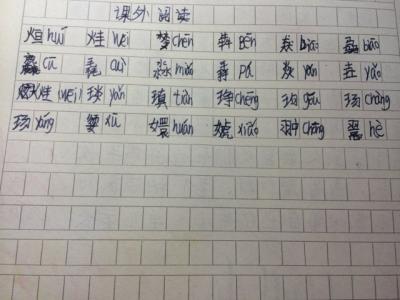 课外阅读
烜huǐ 烓wei 梦chēn 犇Bēn 猋biāo 骉biāo
麤cū 毳cuì 淼miǎo 掱pá 焱yàn 垚yáo
烓(wēi) 琰yǎn 瑱tiàn 琤chēng 玽gǒu 玚chàng
玚yáng 媭xū 嬛huán xiāo 翀chōng 翯hè